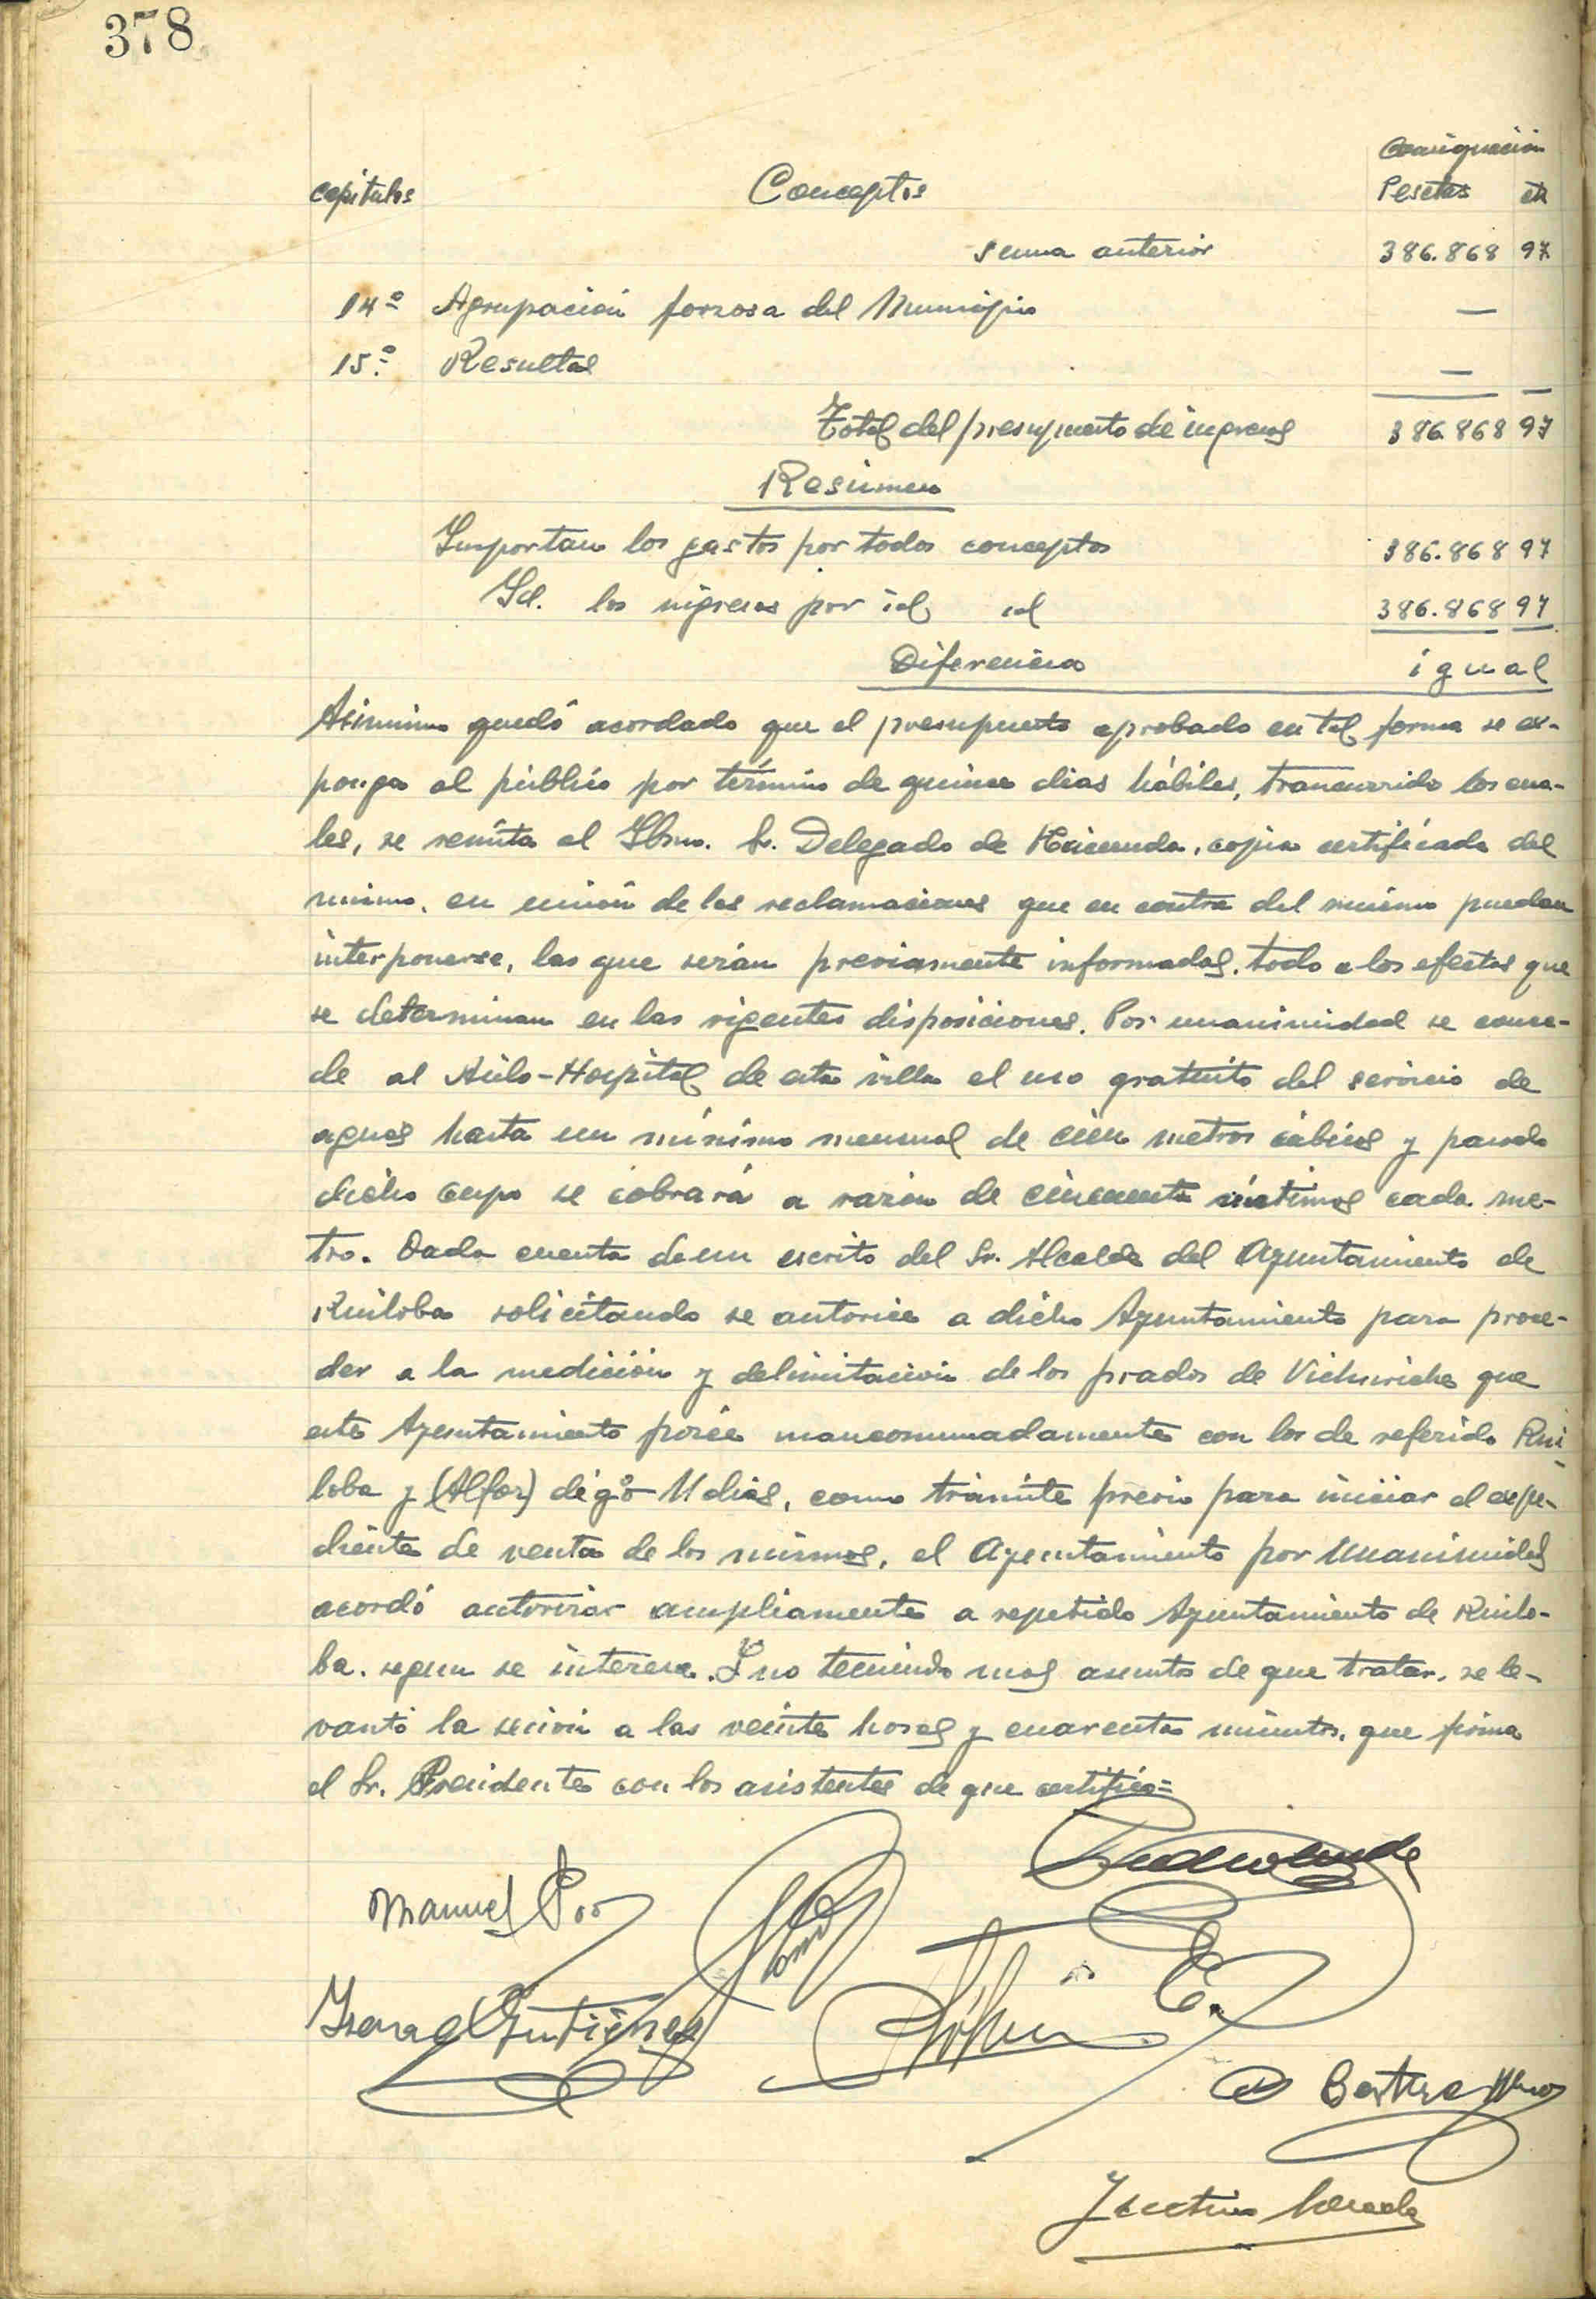 378
Consignación
capítulos Conceptos Pesetas cts
suma anterior 386.868 97
14º Agrupación forzosa del Municipio —
15.º Resultas —
Total del presupuesto de ingresos 386.868 97
Resúmen
Importan los gastos por todos conceptos 386.868 97
Id. los ingresos por id id 386.868 97
Diferencia igual
Asimismo quedó acordado que el presupuesto aprobado en tal forma se ex-
ponga al público por término de quince dias hábiles, trancurrido los cua-
les, se remita al Iltmo. Sr. Delegado de Hacienda, copia certificada del
mismo, en unión de las reclamaciones que en contra del mismo puedan
interponerse, las que serán previamente informadas, todo a los efectos que
se determinan en las vigentes disposiciones. Por unanimidad se conce-
de al Asilo-Hospital de esta villa el uso gratuito del servicio de
aguas hasta un mínimo mensual de cien metros cúbicos y pasado
dicho cupo se cobrará a razón de cincuenta céntimos cada me-
tro. Dada cuenta de un escrito del Sr. Alcalde del Ayuntamiento de
Ruiloba solicitando se autorice a dicho Ayuntamiento para proce-
der a la medición y delimitación de los prados de que
este Ayuntamiento posée mancomunadamente con los de referido Rui
loba y (Alfoz) digo Udias, como trámite previo para iniciar el expe-
diente de venta de los mismos, el Ayuntamiento por unanimidad
acordó autorizar ampliamente a repetido Ayuntamiento de Ruilo-
ba, segun se interesa. Y no teniendo mas asunto de que tratar, se le-
vantó la sesión a las veinte horas y cuarenta minutos, que firma
el Sr. Presidente con los asistentes de que certifico=
Manuel Poo
Gutiérrez